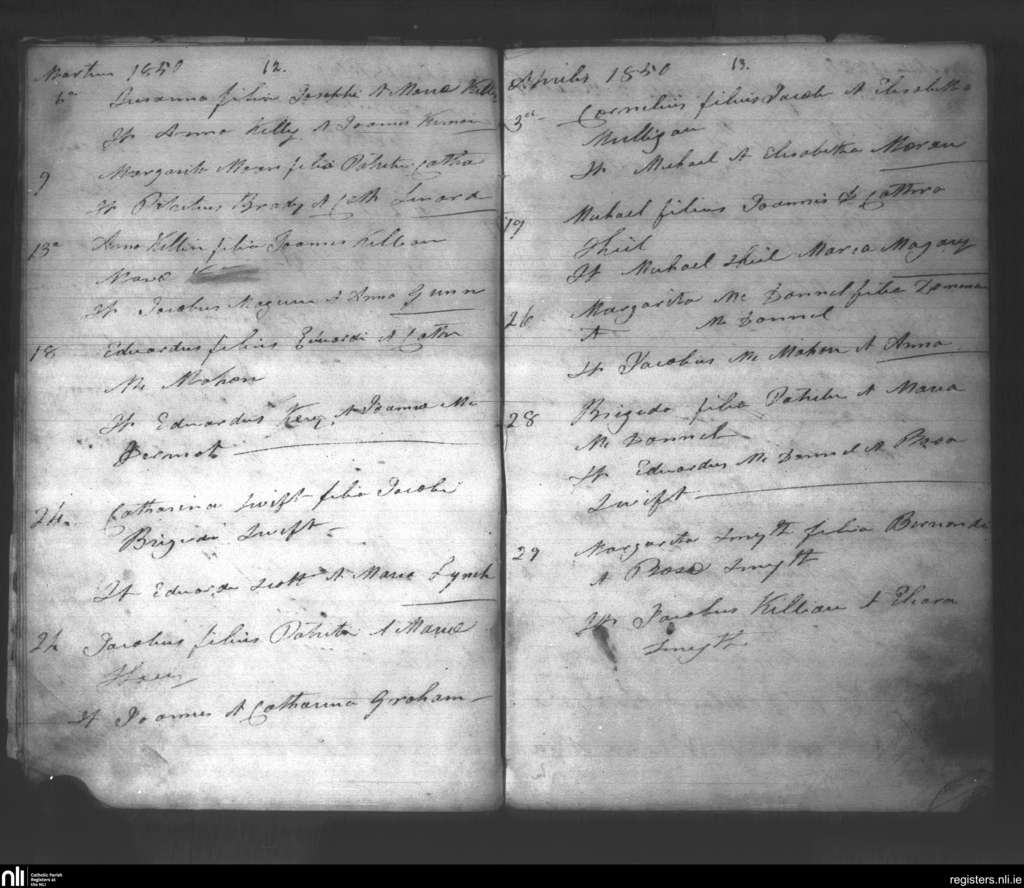 Martius 1850 12.
6a Susanna filia Josephi & Maria Kelly
Sp Anna Kelly & Joannes Kernan
9 Margarita filia Patritii Catha
Sp Patritius Brady & Cath Linard
13a Anna Killin filia Joannes Killian
Maria
Sp Jacobus Maguire & Anna Gunn
18 Eduardus filius Eduardi & Cathr
Mc Mahon
Sp Eduardus & Joanna Mc
Dermott
24 Catharina Swift filia Jacobi
Brigida Swift
Sp Eduardi Scott & Maria Lynch
24 Jacobus filius Patritii & Mariae
Sp Joannes & Catharina Graham
Aprilis 1850 13.
3a Cornelius filius Jacobi & Elisabetha
Mulligan
Sp Michael & Elisabetha Moran
19 Michael filius Joannis & Cathra
Shiel
Sp Michael Shiel Maria Magauy
26 Margarita Mc Donnel filia
& Mc Donnel
Sp Jacobus Mc Mahon & Anna
28 Brigeda filia Patritii & Maria
Mc Donnel
Sp Eduardus Mc Donnel & Rosa
Swift
29 Margarita Smyth filia Bernardi
& Rosa Smyth
Sp Jacobus Killian & Ehara
Smyth
nli
Catholic Parish
Registers at
the NLI
registers.nli.ie